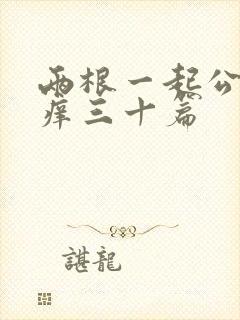 两根一起公
痒三十篇
諶龍